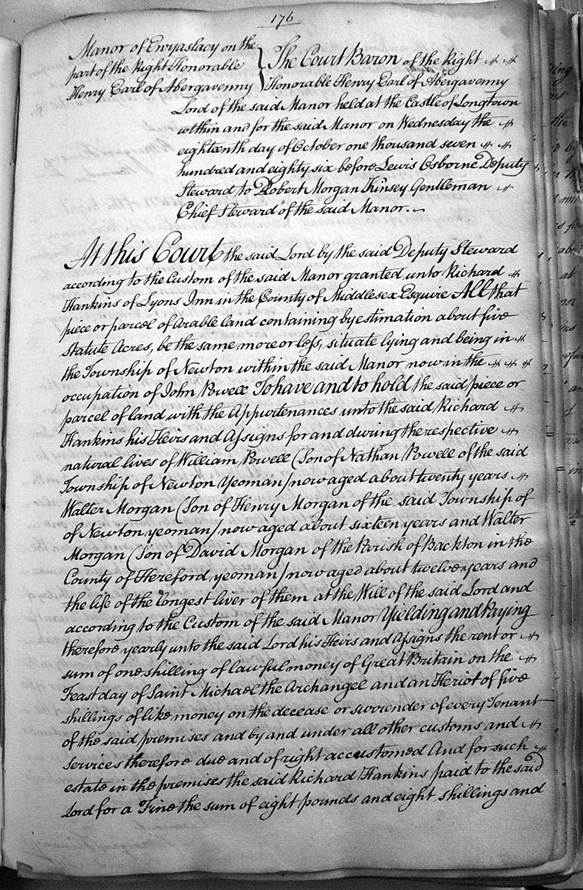 176
Manor of Ewyaslacy on the
part of the Right Honorable
Henry Earl of Abergavenny
The Court Baron of the Right
Honorable Henry Earl of Abergavenny
Lord of the said Manor held at the Castle of Longtown
within and for the said Manor on Wednesday the
eighteenth day of October one thousand seven
hundred and eighty six before Lewis Osborne Deputy
Steward to Robert Morgan Kinsey Gentleman
Chief Steward of the said Manor.
At this Court the said Lord by the said Deputy Steward
according to the Custom of the said Manor granted unto Richard
Hankins of Lyons Inn in the County of Middlesex Esquire All that
piece or parcel of Arable land containing by estimation about five
statute Acres, be the same more or less, situate lying and being in
the Township of Newton within the said Manor now in the
occupation of John Powell To have and to hold the said piece or
parcel of land with the Appurtenances unto the said Richard
Hankins his Heirs and Assigns for and during the respective
natural lives of William Powell (Son of Nathan Powell of the said
Township of Newton Yeoman) now aged about twenty years
Walter Morgan (Son of Henry Morgan of the said Township of
of Newton yeoman) now aged about sixteen years and Walter
Morgan (Son of David Morgan of the Parish of Backton in the
County of Hereford yeoman) now aged about twelve years and
the life of the longest liver of them at the Will of the said Lord and
according to the Custom of the said Manor Yielding and Paying
therefore yearly unto the said Lord his Heirs and Assigns the rent or
sum of one shilling of lawful money of Great Britain on the
Feast day of Saint Michael the Archangel and an Heriot of five
shillings of like money on the decease or surrender of every Tenant
of the said premises and by and under all other customs and
Services therefore due and of right accustomed And for such
estate in the premises the said Richard Hankins paid to the said
Lord for a Fine the sum of eight pounds and eight shillings and